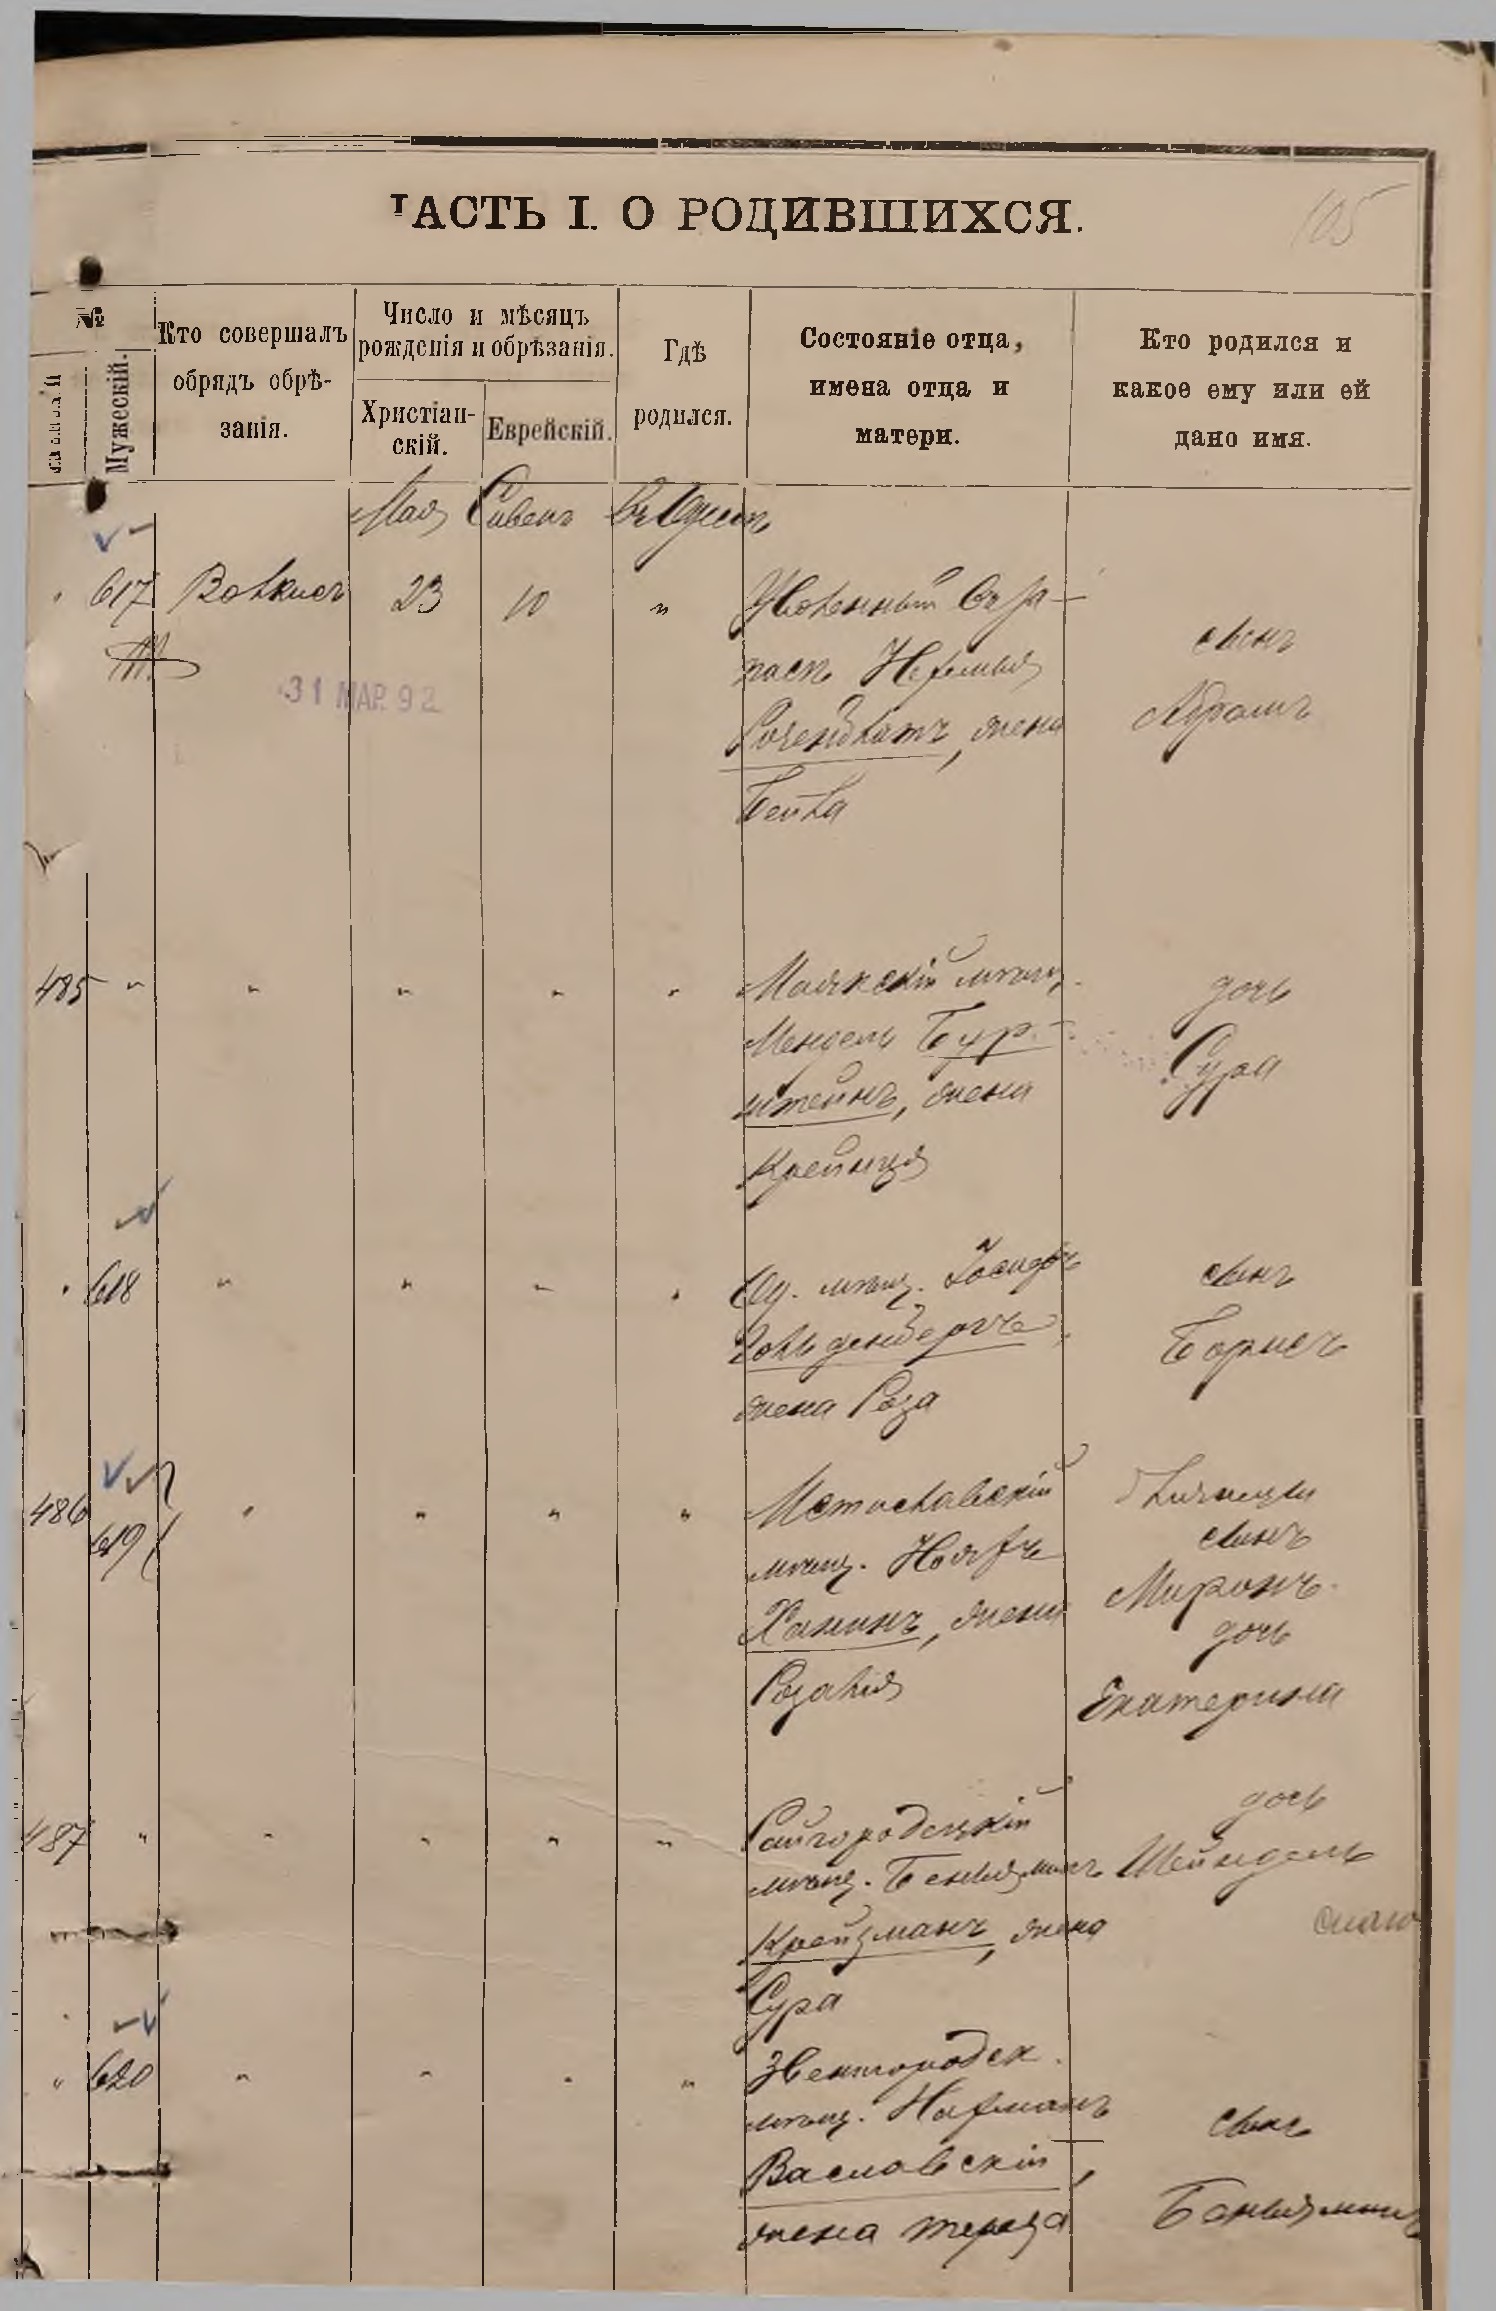 ЧАСТЬ I. О РОДИВШИХСЯ.
105
№
Мужескій.
Кто совершалъ
обрядъ обрѣ-
занія.
Число и мѣсяцъ
рожденія и обрѣзанія.
Христіан-
скій.
Еврейскій.
Гдѣ
родился.
Состояніе отца,
имена отца и
матери.
Кто родился и
какое ему или ей
дано имя.
Мая Сивенъ
617 23 10 " Уволенный въ за-
пасъ Нехемья
Розенблатъ, жена
Бейла
сынъ
Абрамъ
31 МАР. 92
485 " " " " " Маякскій мѣщ.
Мендель Бур-
штейнъ, жена
Крейнця
дочь
Сура
618 " " " " Од. мѣщ. Іосифъ
Гольденбергъ,
жена Роза
сынъ
Борисъ
486 619 " " " " Мстиславскій
мѣщ.
Ханинъ, жена
Розалія
близнецы
сынъ
Миронъ
дочь
Екатерина
487 " " " " " Райгородецкій
мѣщ. Беньяминъ
Крейзманъ, жена
Сура
дочь
Шейндель
" 620 " " " " Звенигородск.
мѣщ. Нахманъ
Васловскій,
жена
сынъ
Беньяминъ